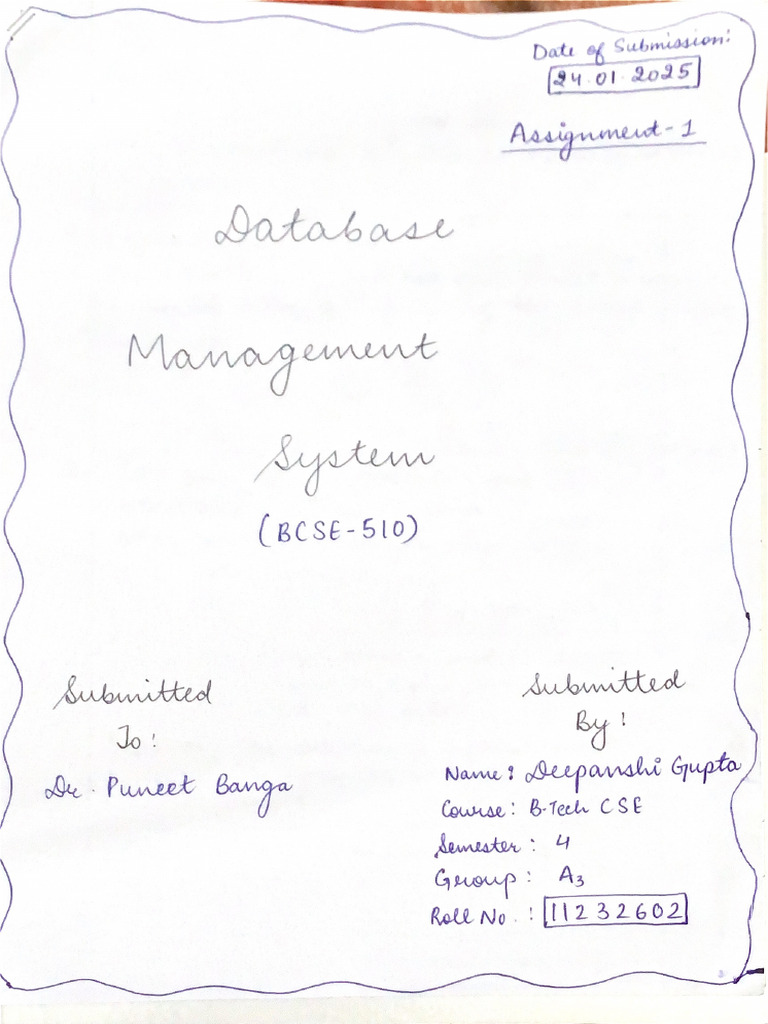 Date of Submission:
24.01.2025
Assignment-1
Database
Management
System
(BCSE-510)
Submitted
To:
Dr. Puneet Banga
Submitted
By:
Name: Deepanshi Gupta
Course: B.Tech CSE
Semester: 4
Group: A3
Roll No.: 11232602